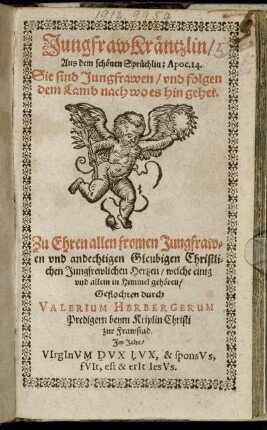 Jungfraw Kräntzlin/
Aus dem schönen Sprüchlin: Apoc. 14.
Sie sind Jungfrawen/ vnd folgen
dem Lamb nach wo es hin gehet.
Zu Ehren allen fromen Jungfraw-
en vnd andechtigen Gleubigen Christli-
chen Jungfrewlichen Hertzen/ welche einig
vnd allein in Himmel gehören/
Geflochten durch
VALERIUM HERBERGERUM
Predigern beym Kriplin Christi
zur Frawstad.
Im Jahr/
VIrgInVM DVX LVX, & sponsVs,
fVIt, est & erIt IesVs.